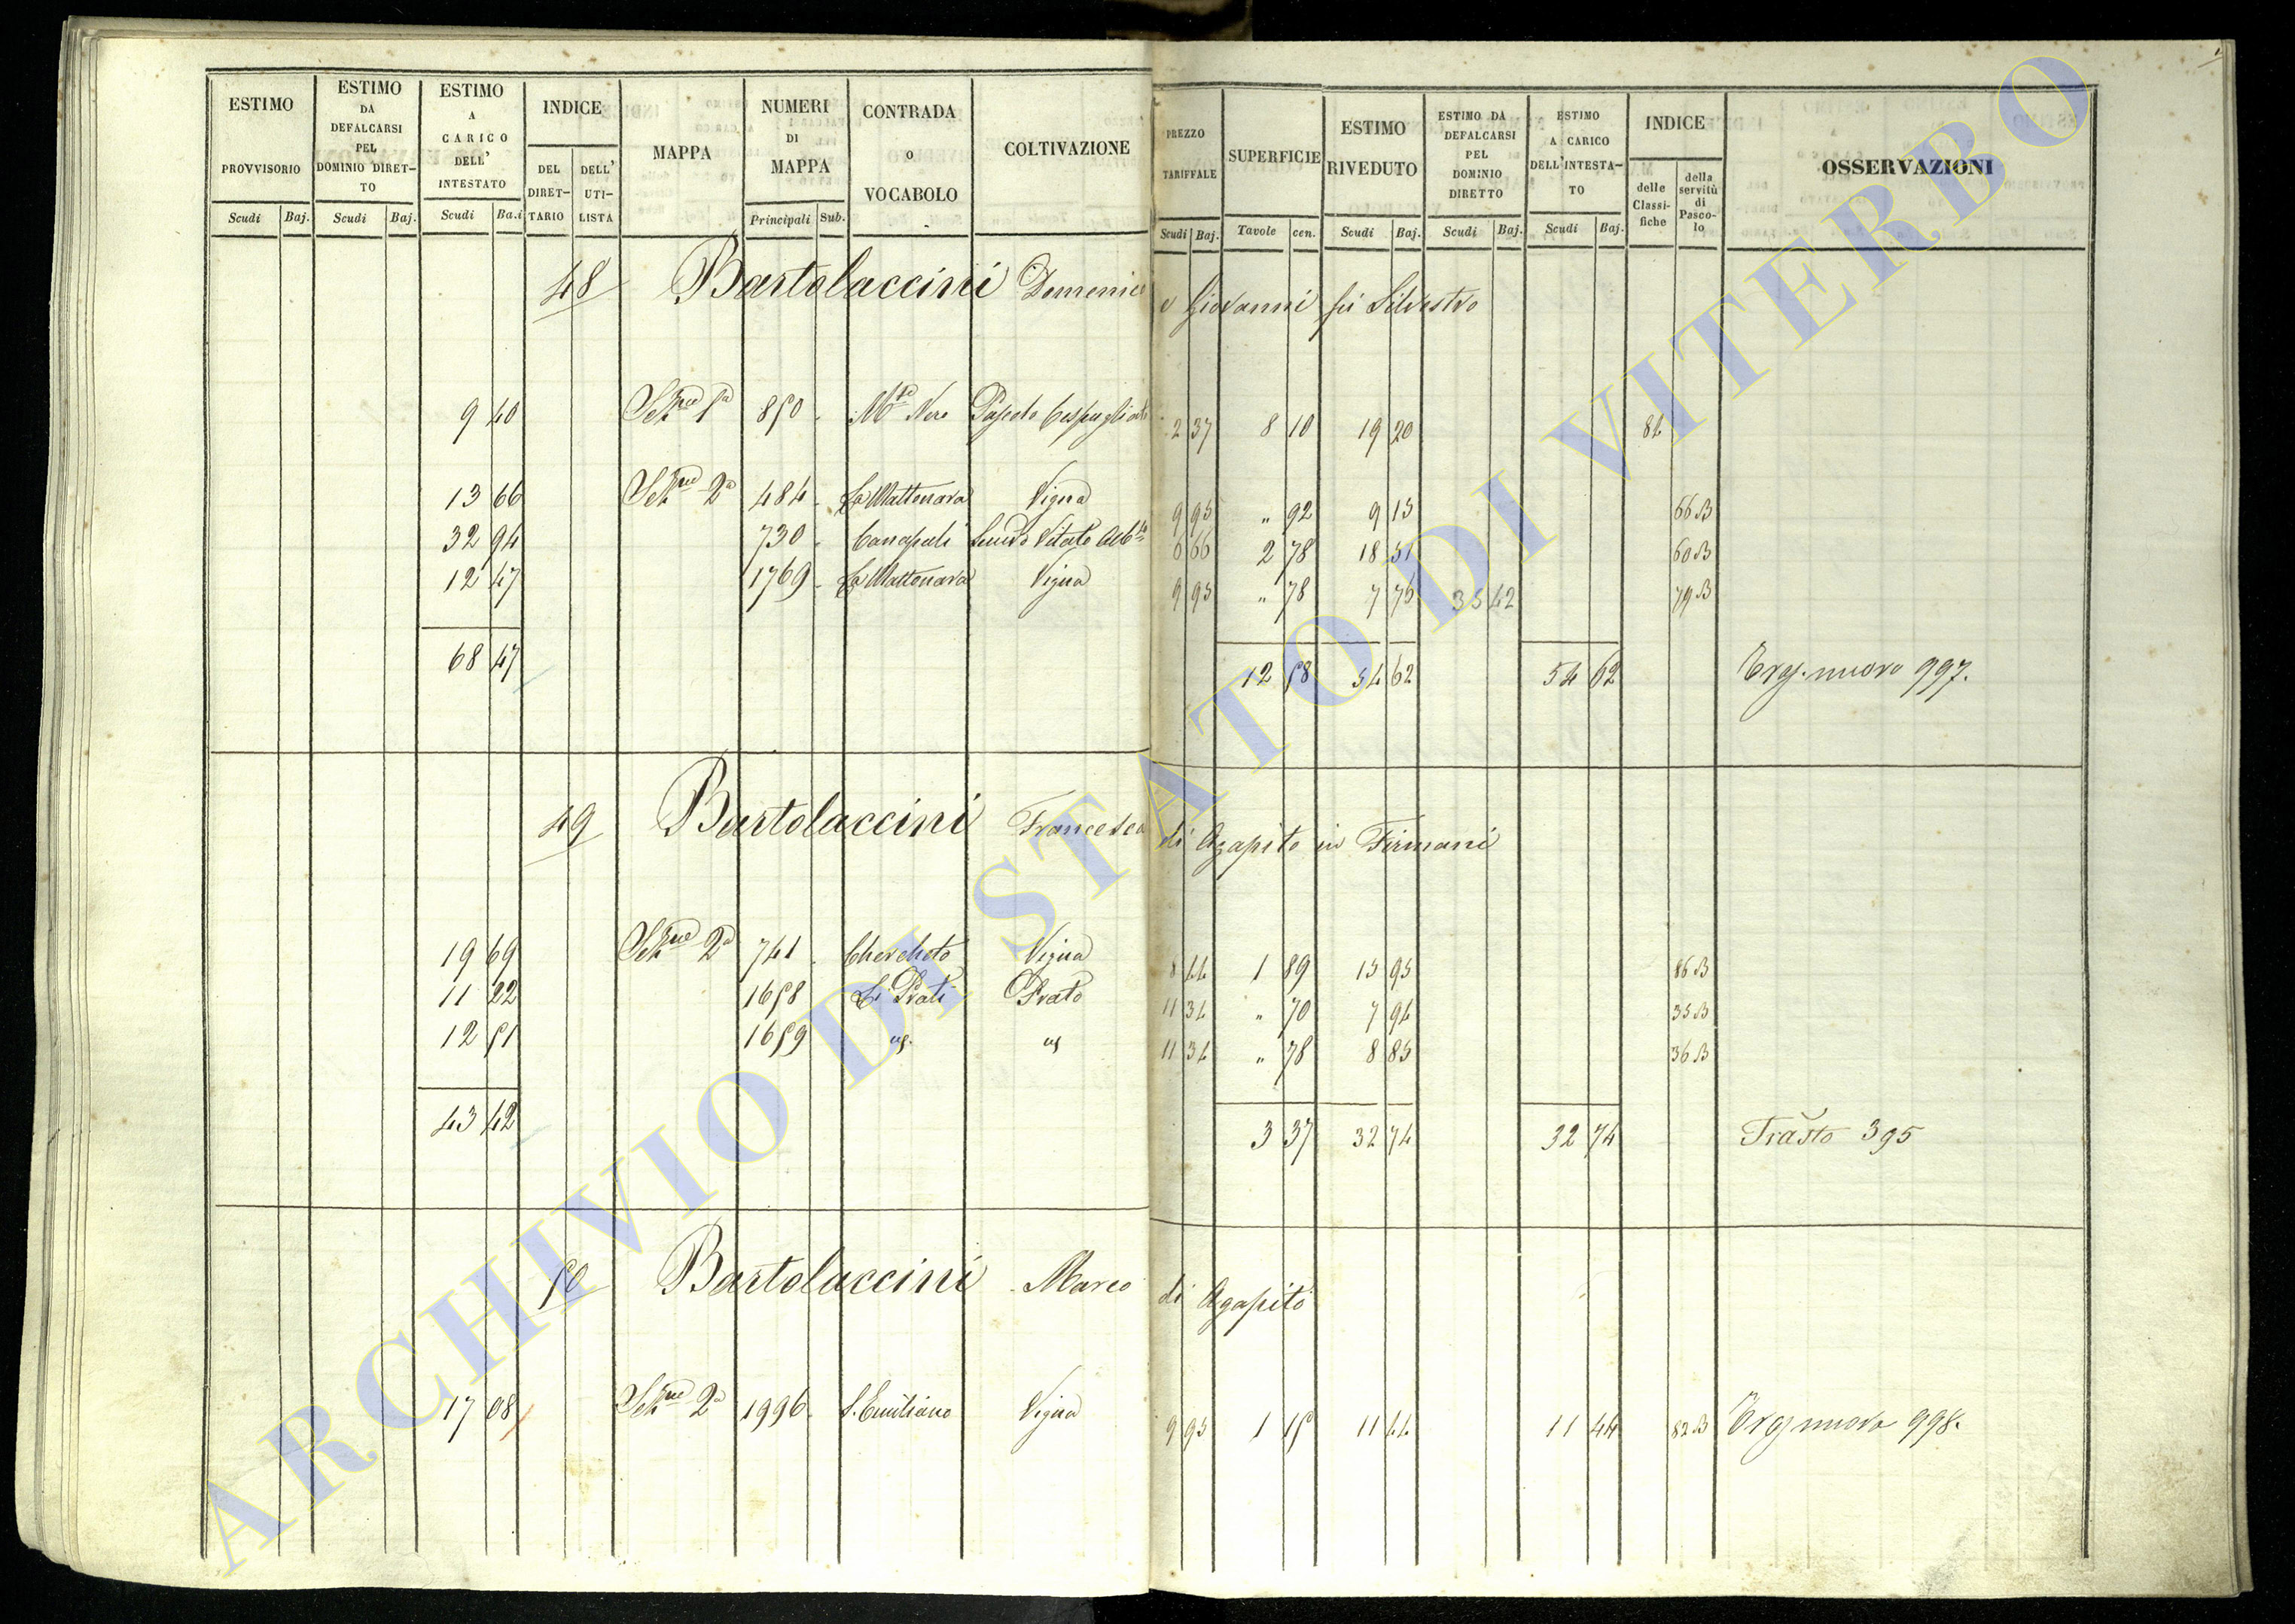 ESTIMO PROVVISORIO Scudi Baj.
ESTIMO DA DEFALCARSI PEL DOMINIO DIRET-TO Scudi Baj.
ESTIMO A CARICO DELL' INTESTATO Scudi Ba.i
INDICE DEL DIRET-TARIO DELL' UTI-LISTA
MAPPA
NUMERI DI MAPPA Principali Sub.
CONTRADA o VOCABOLO
COLTIVAZIONE
PREZZO TARIFFALE Scudi Baj.
SUPERFICIE Tavole cen.
ESTIMO RIVEDUTO Scudi Baj.
ESTIMO DA DEFALCARSI PEL DOMINIO DIRETTO Scudi Baj.
ESTIMO A CARICO DELL'INTESTA-TO Scudi Baj.
INDICE delle Classi-fiche della servitù di Pasco-lo
OSSERVAZIONI
48 Bartolaccini Domenico e Giovanni fu Silvestro
9 40 Sezne 1a 850 Mte Nero Pascolo Cespugliato 2 37 8 10 19 20 84
13 66 Sezne 2a 484 La Mattonara Vigna 9 95 " 92 9 15 66 B
32 94 730 Canapali Semvo Vitato Albto 6 66 2 78 18 51 60 B
12 47 1769 La Mattonara Vigna 9 95 " 78 7 76 35 42 79 B
68 47 12 58 54 62 54 62 Erg. nuovo 997.
49 Bartolaccini Francesca di Agapito in Firmani
19 69 Sezne 2a 741 Chercheto Vigna 8 44 1 89 15 95 86 B
11 22 1658 Li Prati Prato 11 34 " 70 7 94 35 B
12 51 1659 " 78 11 34 8 85 36 B
43 42 3 37 32 74 32 74 Trasto 395
50 Bartolaccini Marco di Agapito
17 08 Sezne 2a 1996 S. Emiliano Vigna 9 95 1 15 11 44 11 44 82 B Erg nuovo 998.
ARCHIVIO DI STATO DI VITERBO